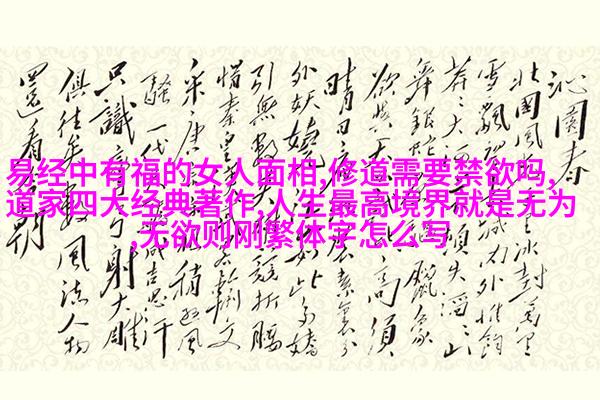 易经中有福的女人面相,修道需要禁欲吗,
道家四大经典著作,人生最高境界就是无为
,无欲则刚繁体字怎么写
沁園春
北国風光 冰封萬里
雪飄 城内外惟餘
莽莽大河 頓失滔滔山
舞銀蛇 象
欲與天 高須
晴日 素裹分
外妖嬈 如此多嬌
引無數 競折腰
惜秦皇 輸文
采唐宗 稍遜風
騷一代天 成吉思汗
只識彎弓射大雕
俱往矣數風流人物
還看 朝